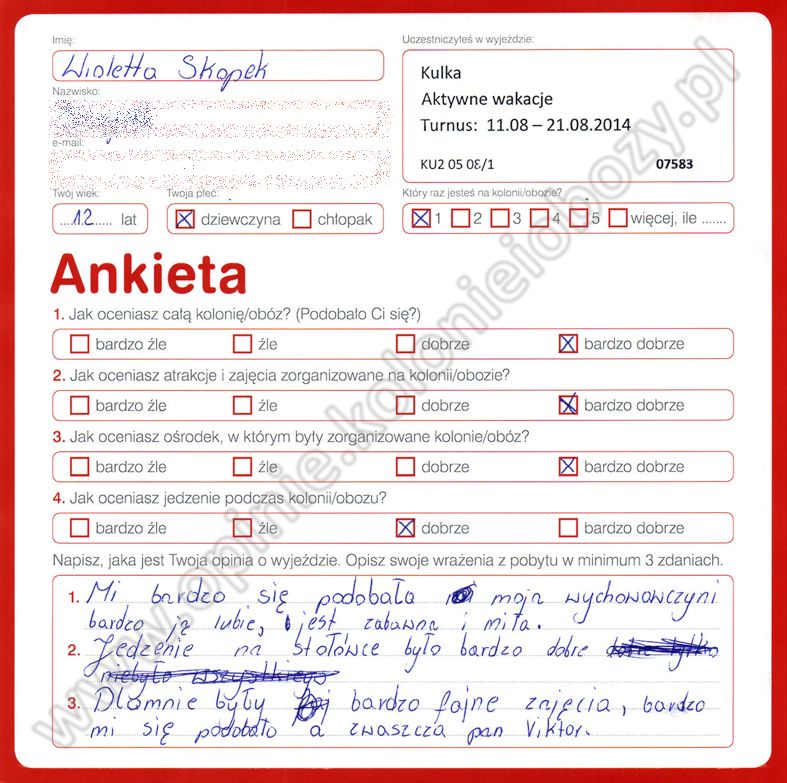 Imię:
Uczestniczyłeś w wyjeździe:
Wioletta Skopek
Kulka
Aktywne wakacje
Turnus: 11.08 – 21.08.2014
KU2 05 08/1 07583
Nazwisko:
e-mail:
Twój wiek: Twoja płeć: Który raz jesteś na kolonii/obozie?
....12..... lat dziewczyna chłopak 1 2 3 4 5 więcej, ile .......
Ankieta
1. Jak oceniasz całą kolonię/obóz? (Podobało Ci się?)
bardzo źle źle dobrze bardzo dobrze
2. Jak oceniasz atrakcje i zajęcia zorganizowane na kolonii/obozie?
bardzo źle źle dobrze bardzo dobrze
3. Jak oceniasz ośrodek, w którym były zorganizowane kolonie/obóz?
bardzo źle źle dobrze bardzo dobrze
4. Jak oceniasz jedzenie podczas kolonii/obozu?
bardzo źle źle dobrze bardzo dobrze
Napisz, jaka jest Twoja opinia o wyjeździe. Opisz swoje wrażenia z pobytu w minimum 3 zdaniach.
1. Mi bardzo się podobała moja wychowowczyni
bardzo ją lubię, jest zabawna i miła.
2. Jedzenie na stołówce było bardzo dobre
niebyło wszystkiego
3. Dlamnie były bardzo fajne zajęcia, bardzo
mi się podobało a zwaszcza pan Viktor.
www.opinie.kolonieiobozy.pl